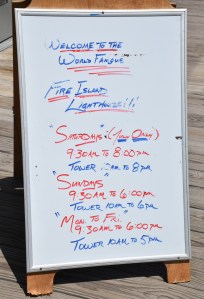 WELCOME TO THE
WORLD FAMOUS
FIRE ISLAND
LIGHTHOUSE!!!
"SATURDAYS" (JULY ONLY)
9:30AM TO 8:00PM
"TOWER AM TO 8PM
"SUNDAYS"
9:30AM TO 6:00PM
TOWER 10AM TO 6PM
"MON. TO FRI."
9:30AM TO 6:00PM
TOWER 10AM TO 5PM